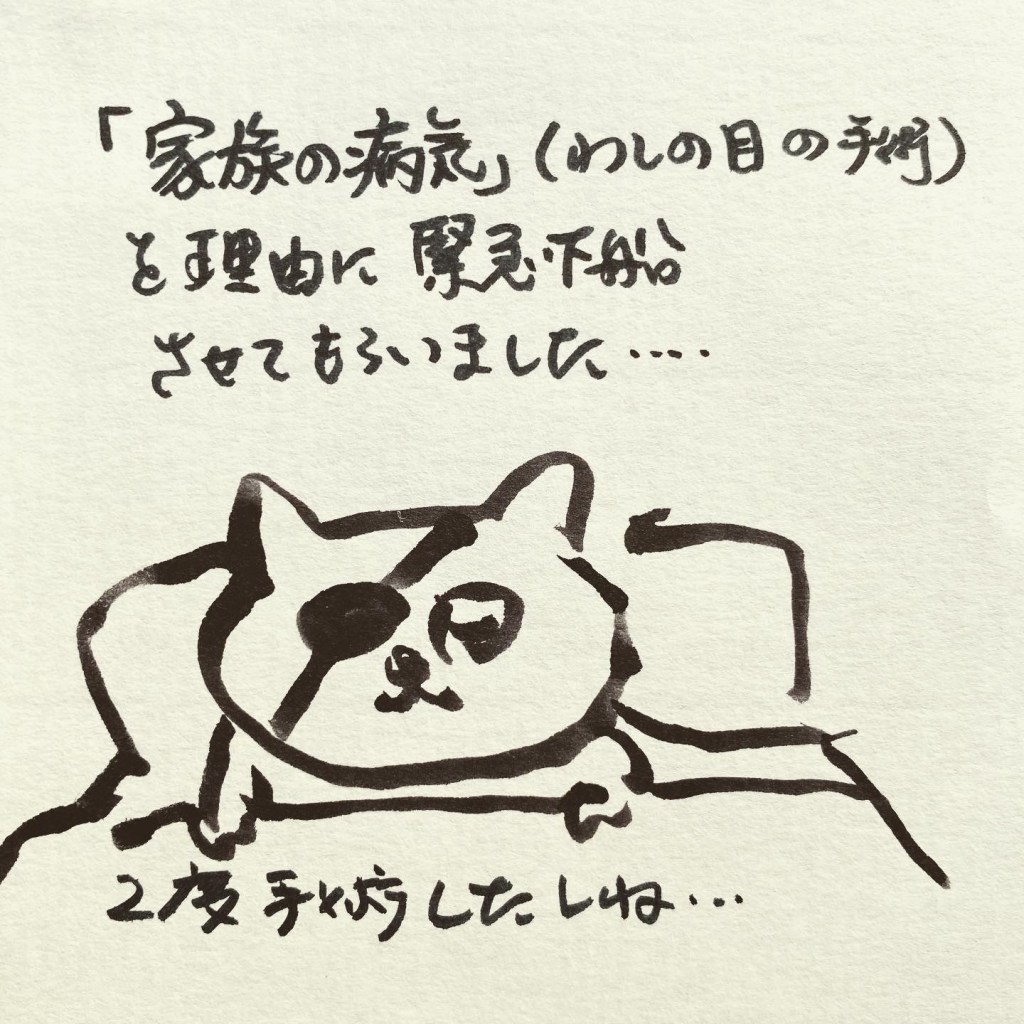 「家族の病気」(わしの目の手術)
を理由に緊急下船
させてもらいました‥‥
2度手術したしね…